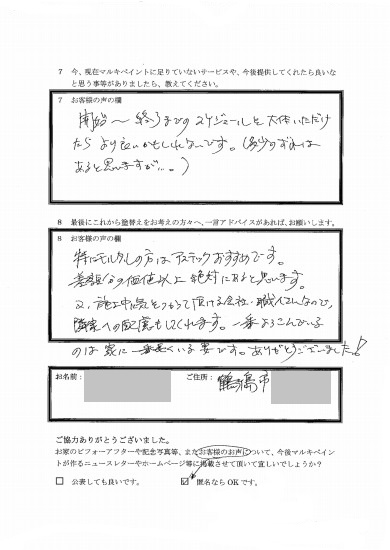 7 今、現在マルキペイントに足りていないサービスや、今後提供してくれたら良いな
と思う事等がありましたら、教えてください。
7 お客様の声の欄
開始〜終了までのスケジュールを大体いただけ
たらより良いかもしれないです。(多少のずれは
あると思いますが…。)
8 最後にこれから塗替えをお考えの方々へ、一言アドバイスがあれば、お願いします。
8 お客様の声の欄
特にモルタルの方はアステックおすすめです。
差額分の価値以上絶対にあると思います。
又、施工中気をつかって頂ける会社・職人さんなので、
隣家への配慮もしてくれます。一番よろこんでいる
のは家に一番長くいる妻です。ありがとうございました!
お名前:
ご住所:
鶴ヶ島市
ご協力ありがとうございました。
お家のビフォーアフターや記念写真等、またお客様のお声について、今後マルキペイン
トが作るニュースレターやホームページ等に掲載させて頂いて宜しいでしょうか?
□ 公表しても良いです。
☑ 匿名ならOKです。